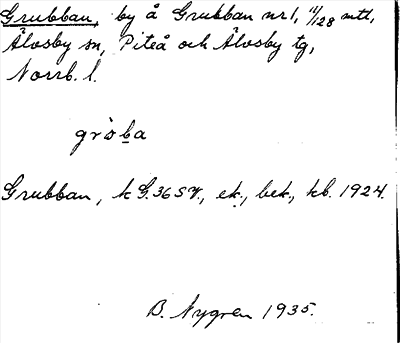 Grubban, by å Grubban nr 1, 11/128 mtl,
Älvsby sn, Piteå och Älvsby tg,
Norrb. l.
gròba
Grubban, k G. 36 SV., ek., bek., kb. 1924.
B. Nygren 1935.